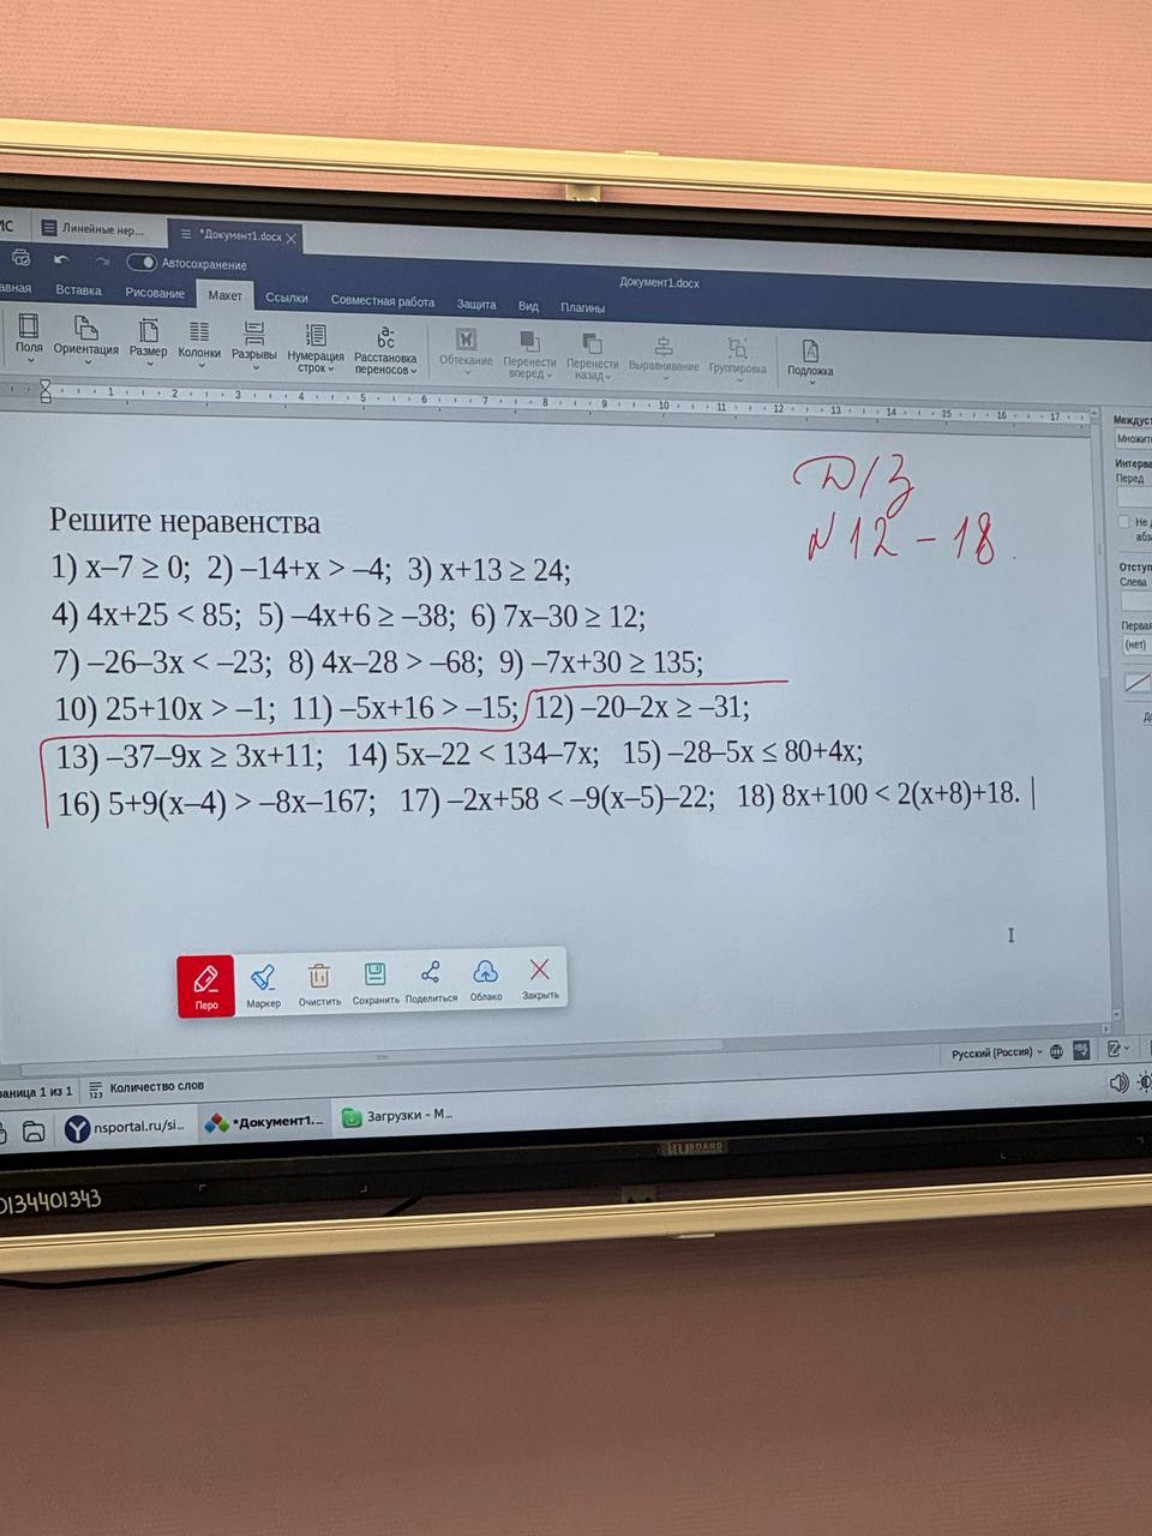 Линейные нер...
*Документ1.docx
Автосохранение
Документ1.docx
Вставка Рисование Макет Ссылки Совместная работа Защита Вид Плагины
Поля Ориентация Размер Колонки Разрывы Нумерация строк Расстановка переносов Обтекание Перенести вперед Перенести назад Выравнивание Группировка Подложка
1 2 3 4 5 6 7 8 9 10 11 12 13 14 15 16 17
Д/З
N 12 – 18
Решите неравенства
1) x–7 ≥ 0; 2) –14+x > –4; 3) x+13 ≥ 24;
4) 4x+25 < 85; 5) –4x+6 ≥ –38; 6) 7x–30 ≥ 12;
7) –26–3x < –23; 8) 4x–28 > –68; 9) –7x+30 ≥ 135;
10) 25+10x > –1; 11) –5x+16 > –15; 12) –20–2x ≥ –31;
13) –37–9x ≥ 3x+11; 14) 5x–22 < 134–7x; 15) –28–5x ≤ 80+4x;
16) 5+9(x–4) > –8x–167; 17) –2x+58 < –9(x–5)–22; 18) 8x+100 < 2(x+8)+18.
Перед
Не
Слева
(нет)
Перо Маркер Очистить Сохранить Поделиться Облако Закрыть
Русский (Россия)
1 из 1 Количество слов
nsportal.ru/si... *Документ1.... Загрузки – М...
0134401343